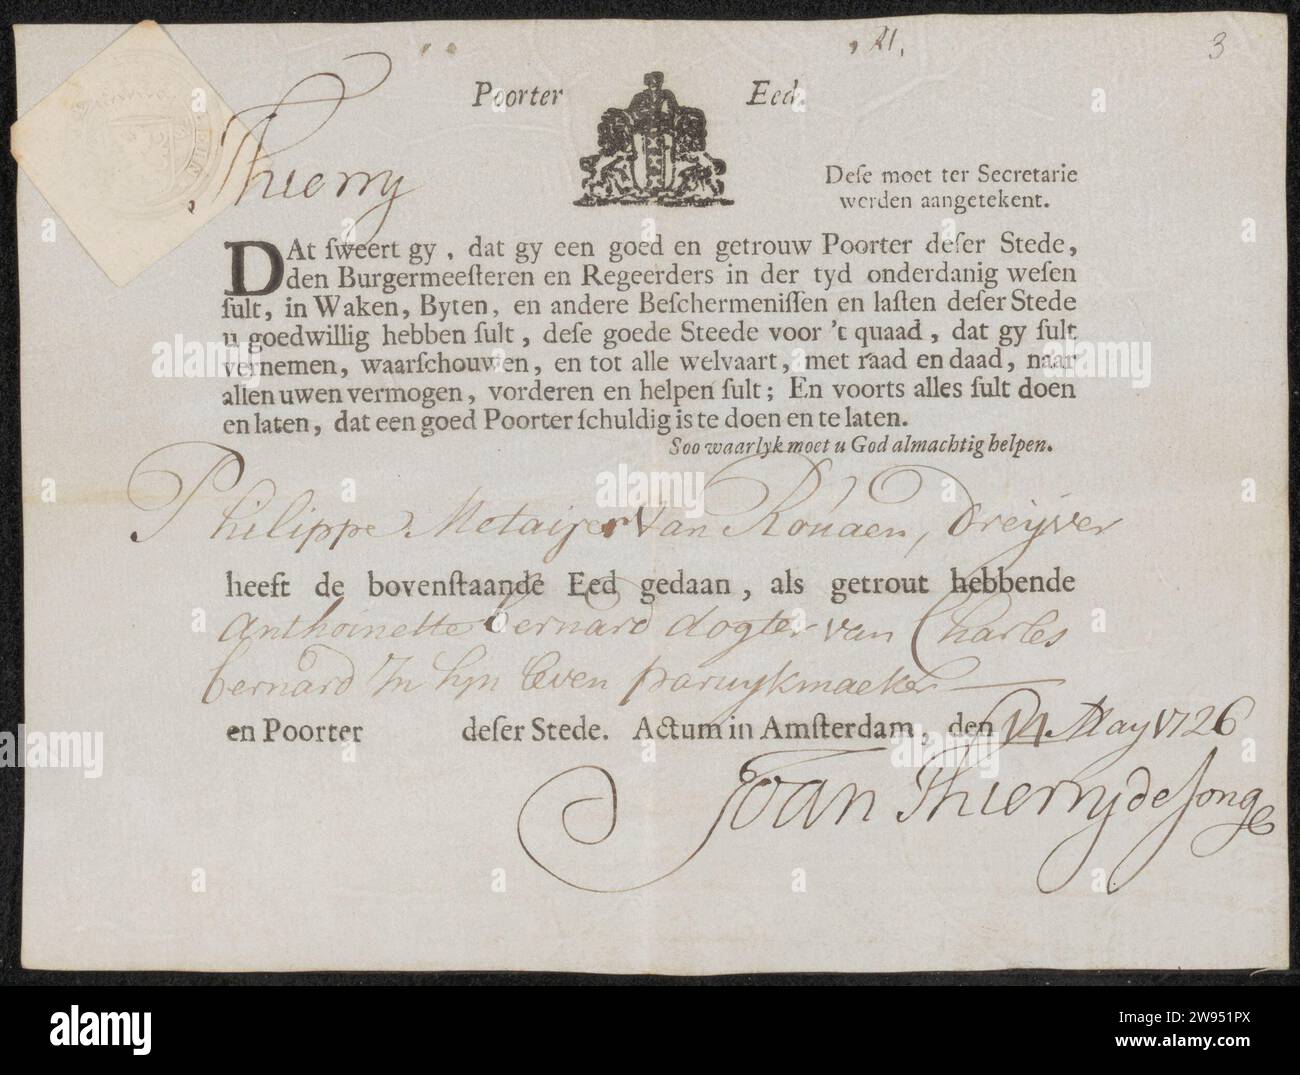 21.
3
Poorter Eed.
Thierry
Dese moet ter Secretarie
werden aangetekent.
DAt sweert gy, dat gy een goed en getrouw Poorter deser Stede,
den Burgermeesteren en Regeerders in der tyd onderdanig wesen
sult, in Waken, Byten, en andere Beschermenissen en lasten deser Stede
u goedwillig hebben sult, dese goede Steede voor 't quaad, dat gy sult
vernemen, waarschouwen, en tot alle welvaart, met raad en daad, naar
allen uwen vermogen, vorderen en helpen sult; En voorts alles sult doen
en laten, dat een goed Poorter schuldig is te doen en te laten.
Soo waarlyk moet u God almachtig helpen.
Philippe Metaijer van Roúaen, Dreijver
heeft de bovenstaande Eed gedaan, als getrout hebbende
Anthoinette bernard dogter van Charles
bernard In sijn leven paruijkmaeker
en Poorter deser Stede. Actum in Amsterdam, den 14 May 1726
Joan Thierry de Jonge
alamy
Image ID: 2W951PX
www.alamy.com